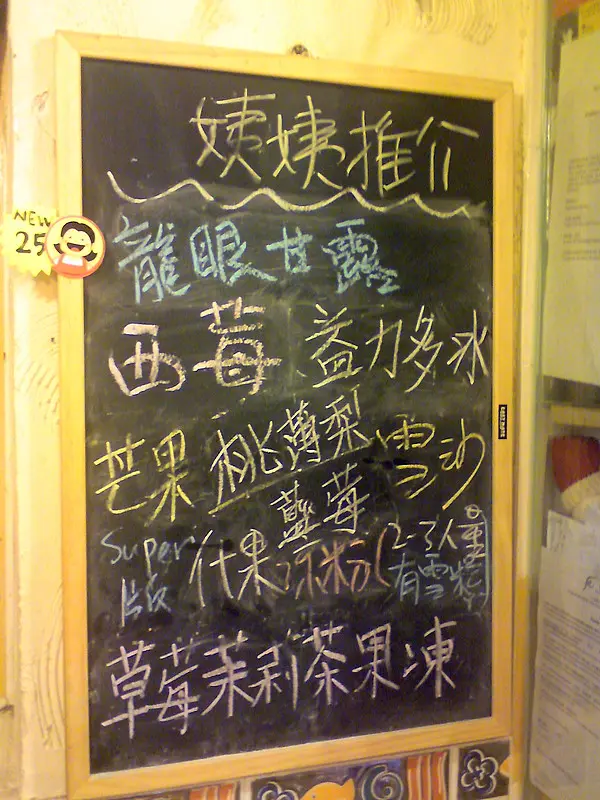 姨姨推介
NEW
25
龍眼甘露
西莓、益力多冰
芒果 桃薄梨 雪沙
藍莓
Super版 什果涼粉(2-3人量
有雪糕)
草莓茉莉茶果凍